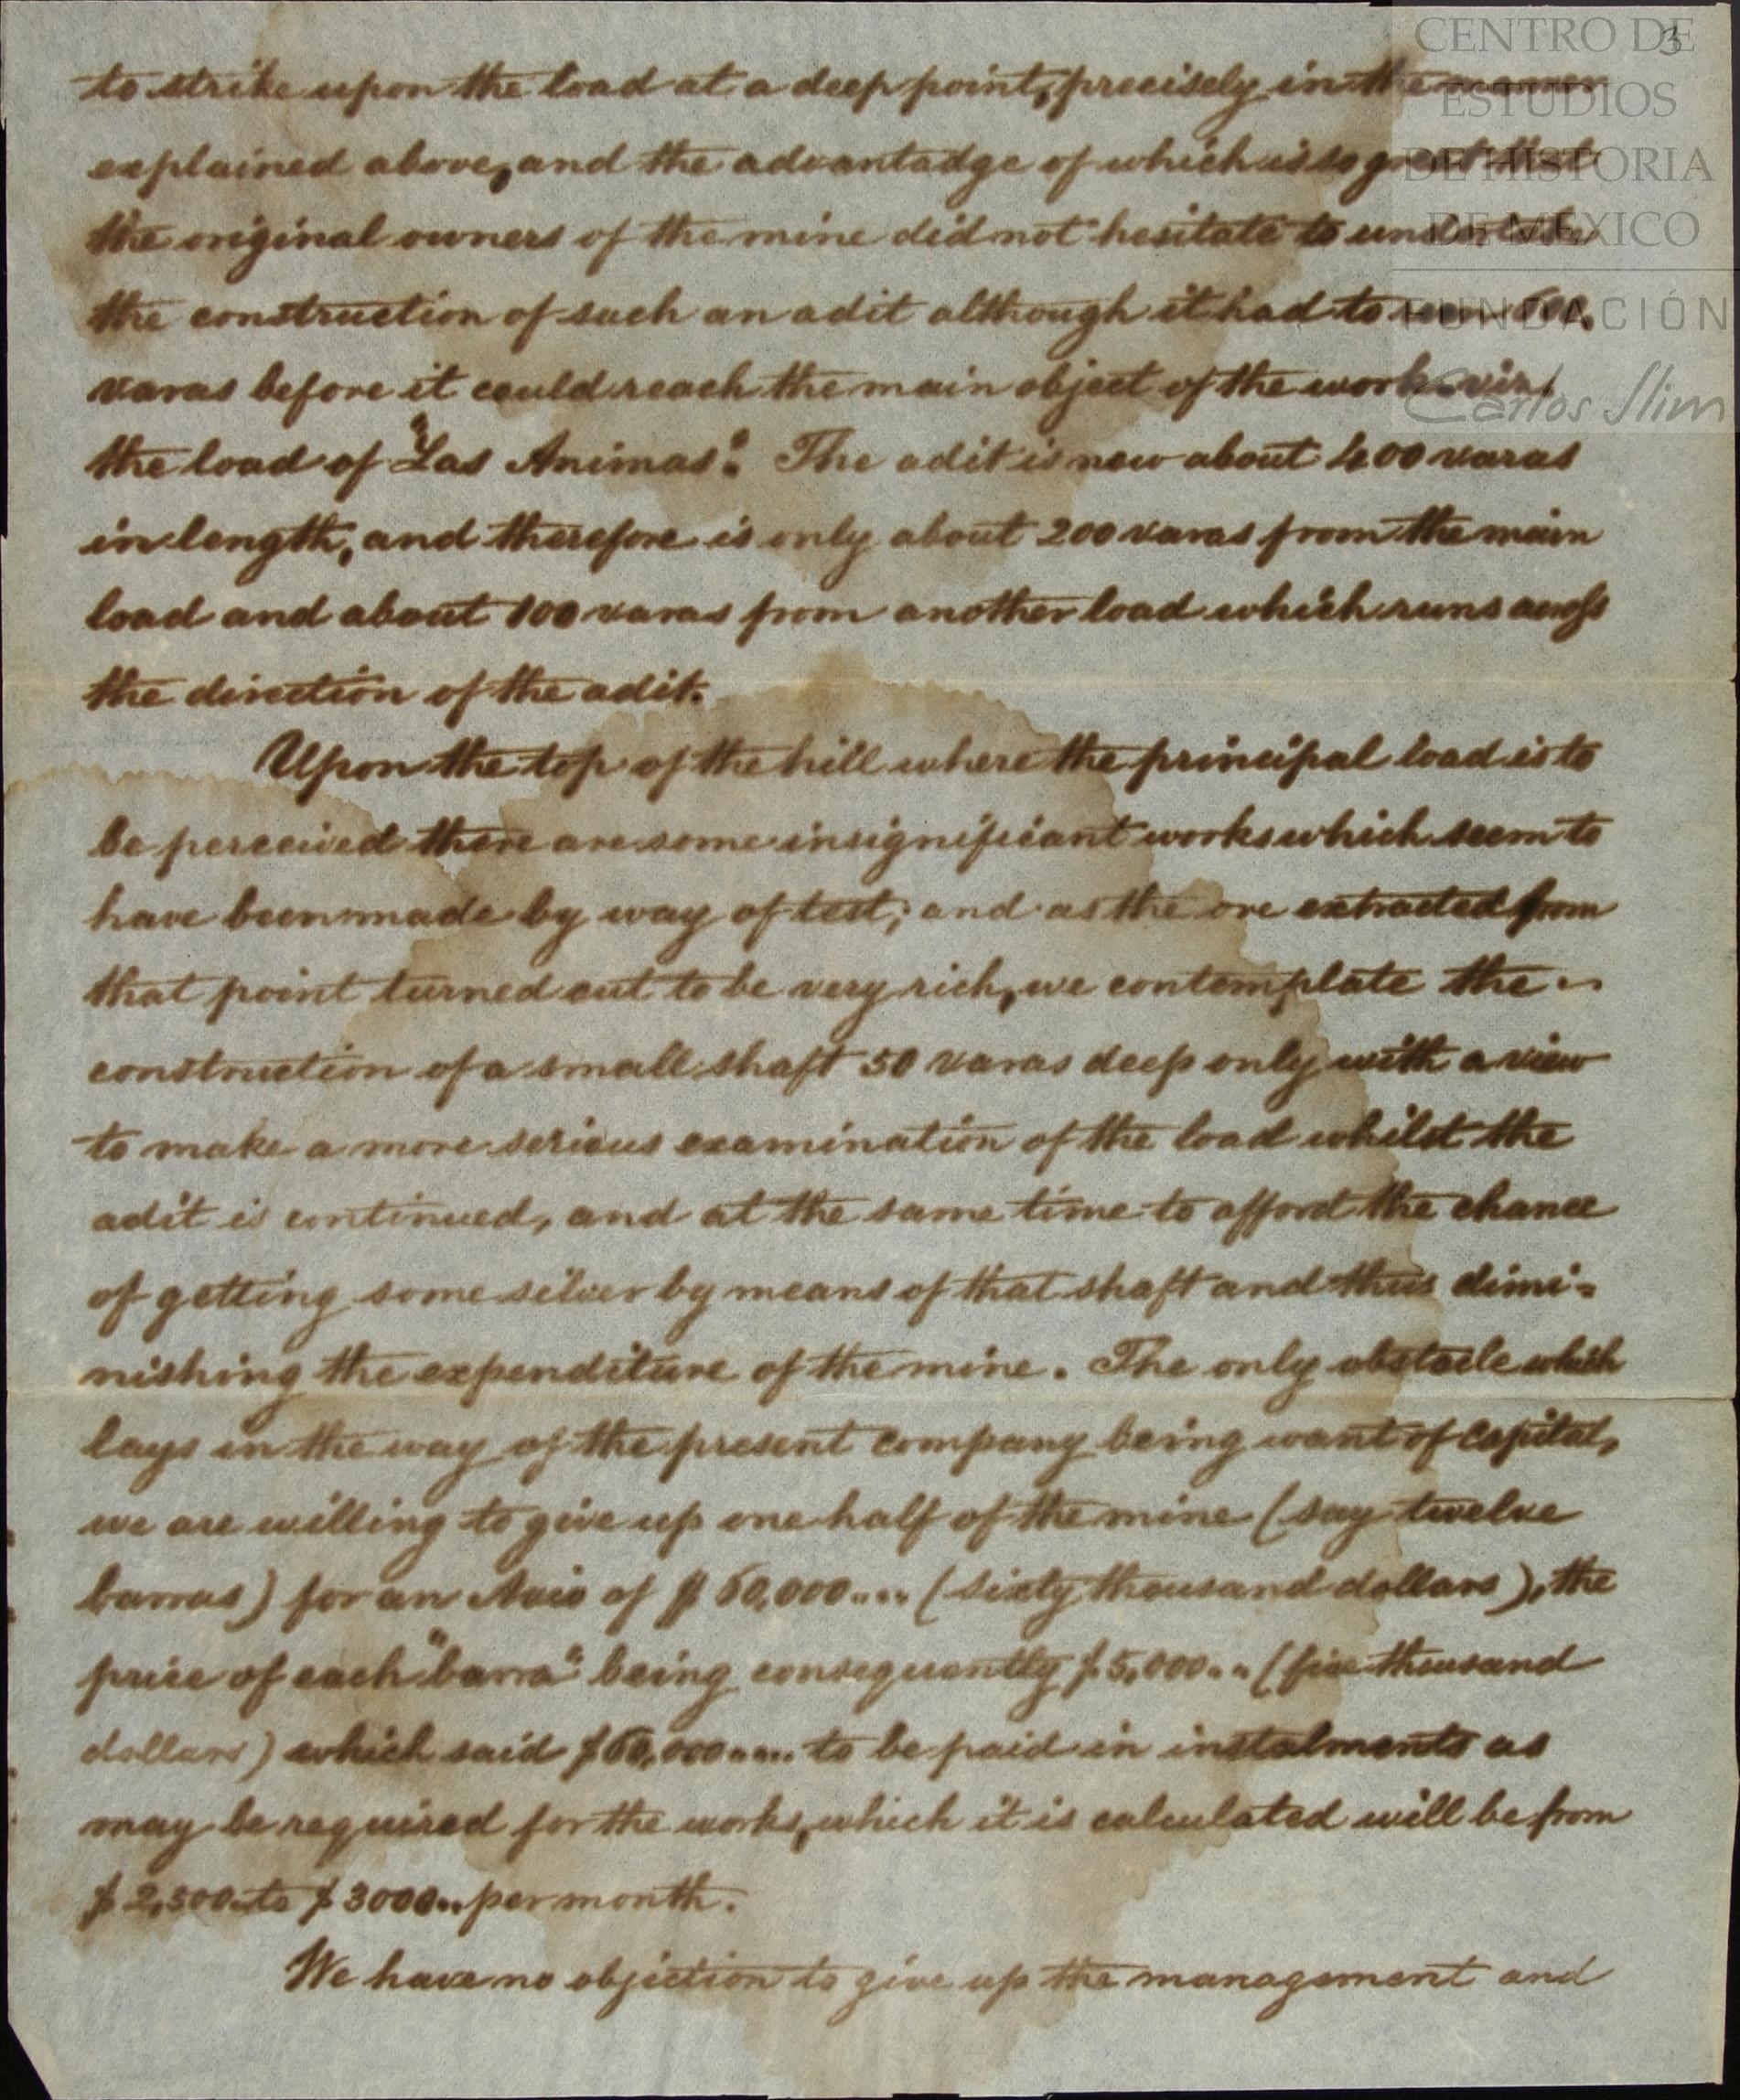 3
CENTRO DE
ESTUDIOS
DE HISTORIA
DE MEXICO
FUNDACIÓN
Carlos Slim
to strike upon the load at a deep point, precisely in the manner
explained above, and the advantadge of which is so great that
the original owners of the mine did not hesitate to undertake
the construction of such an adit although it had to run 600
varas before it could reach the main object of the work viz,
the load of "Las Animas". The adit is now about 400 varas
in length, and therefore is only about 200 varas from the main
load and about 100 varas from another load which runs across
the direction of the adit.
Upon the top of the hill where the principal load is to
be perceived there are some insignificant works which seem to
have been made by way of test; and as the ore extracted from
that point turned out to be very rich, we contemplate the
construction of a small shaft 50 varas deep only with a view
to make a more serious examination of the load whilst the
adit is continued, and at the same time to afford the chance
of getting some silver by means of that shaft and thus dimi=
nishing the expenditure of the mine. The only obstacle which
lays in the way of the present company being want of capital,
we are willing to give up one half of the mine (say twelve
barras) for an Avio of $ 60,000.... (sixty thousand dollars), the
price of each "barra" being consequently $ 5,000.. (five thousand
dollars) which said $60,000.... to be paid in instalments as
may be required for the works, which it is calculated will be from
$ 2,500.. to $ 3000.. per month.
We have no objection to give up the management and